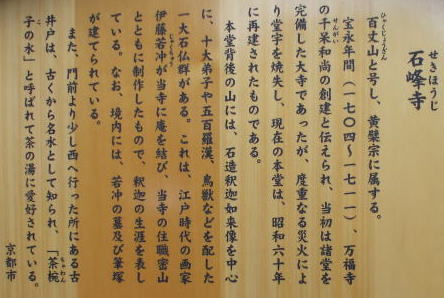 せきほうじ
石峰寺
ひゃくじょうざん
百丈山と号し、黄檗宗に属する。
宝永年間(一七〇四〜一七一一)、万福寺
の千呆和尚の創建と伝えられ、当初は諸堂を
完備した大寺であったが、度重なる災火によ
り堂宇を焼失し、現在の本堂は、昭和六十年
に再建されたものである。
本堂背後の山には、石造釈迦如来像を中心
に、十大弟子や五百羅漢、鳥獣などを配した
一大石仏群がある。これは、江戸時代の画家
伊藤若冲が当寺に庵を結び、当寺の住職密山
とともに制作したもので、釈迦の生涯を表し
ている。なお、境内には、若冲の墓及び筆塚
が建てられている。
また、門前より少し西へ行った所にある古
井戸は、古くから名水として知られ、「茶椀
子の水」と呼ばれて茶の湯に愛好されている。
京都市